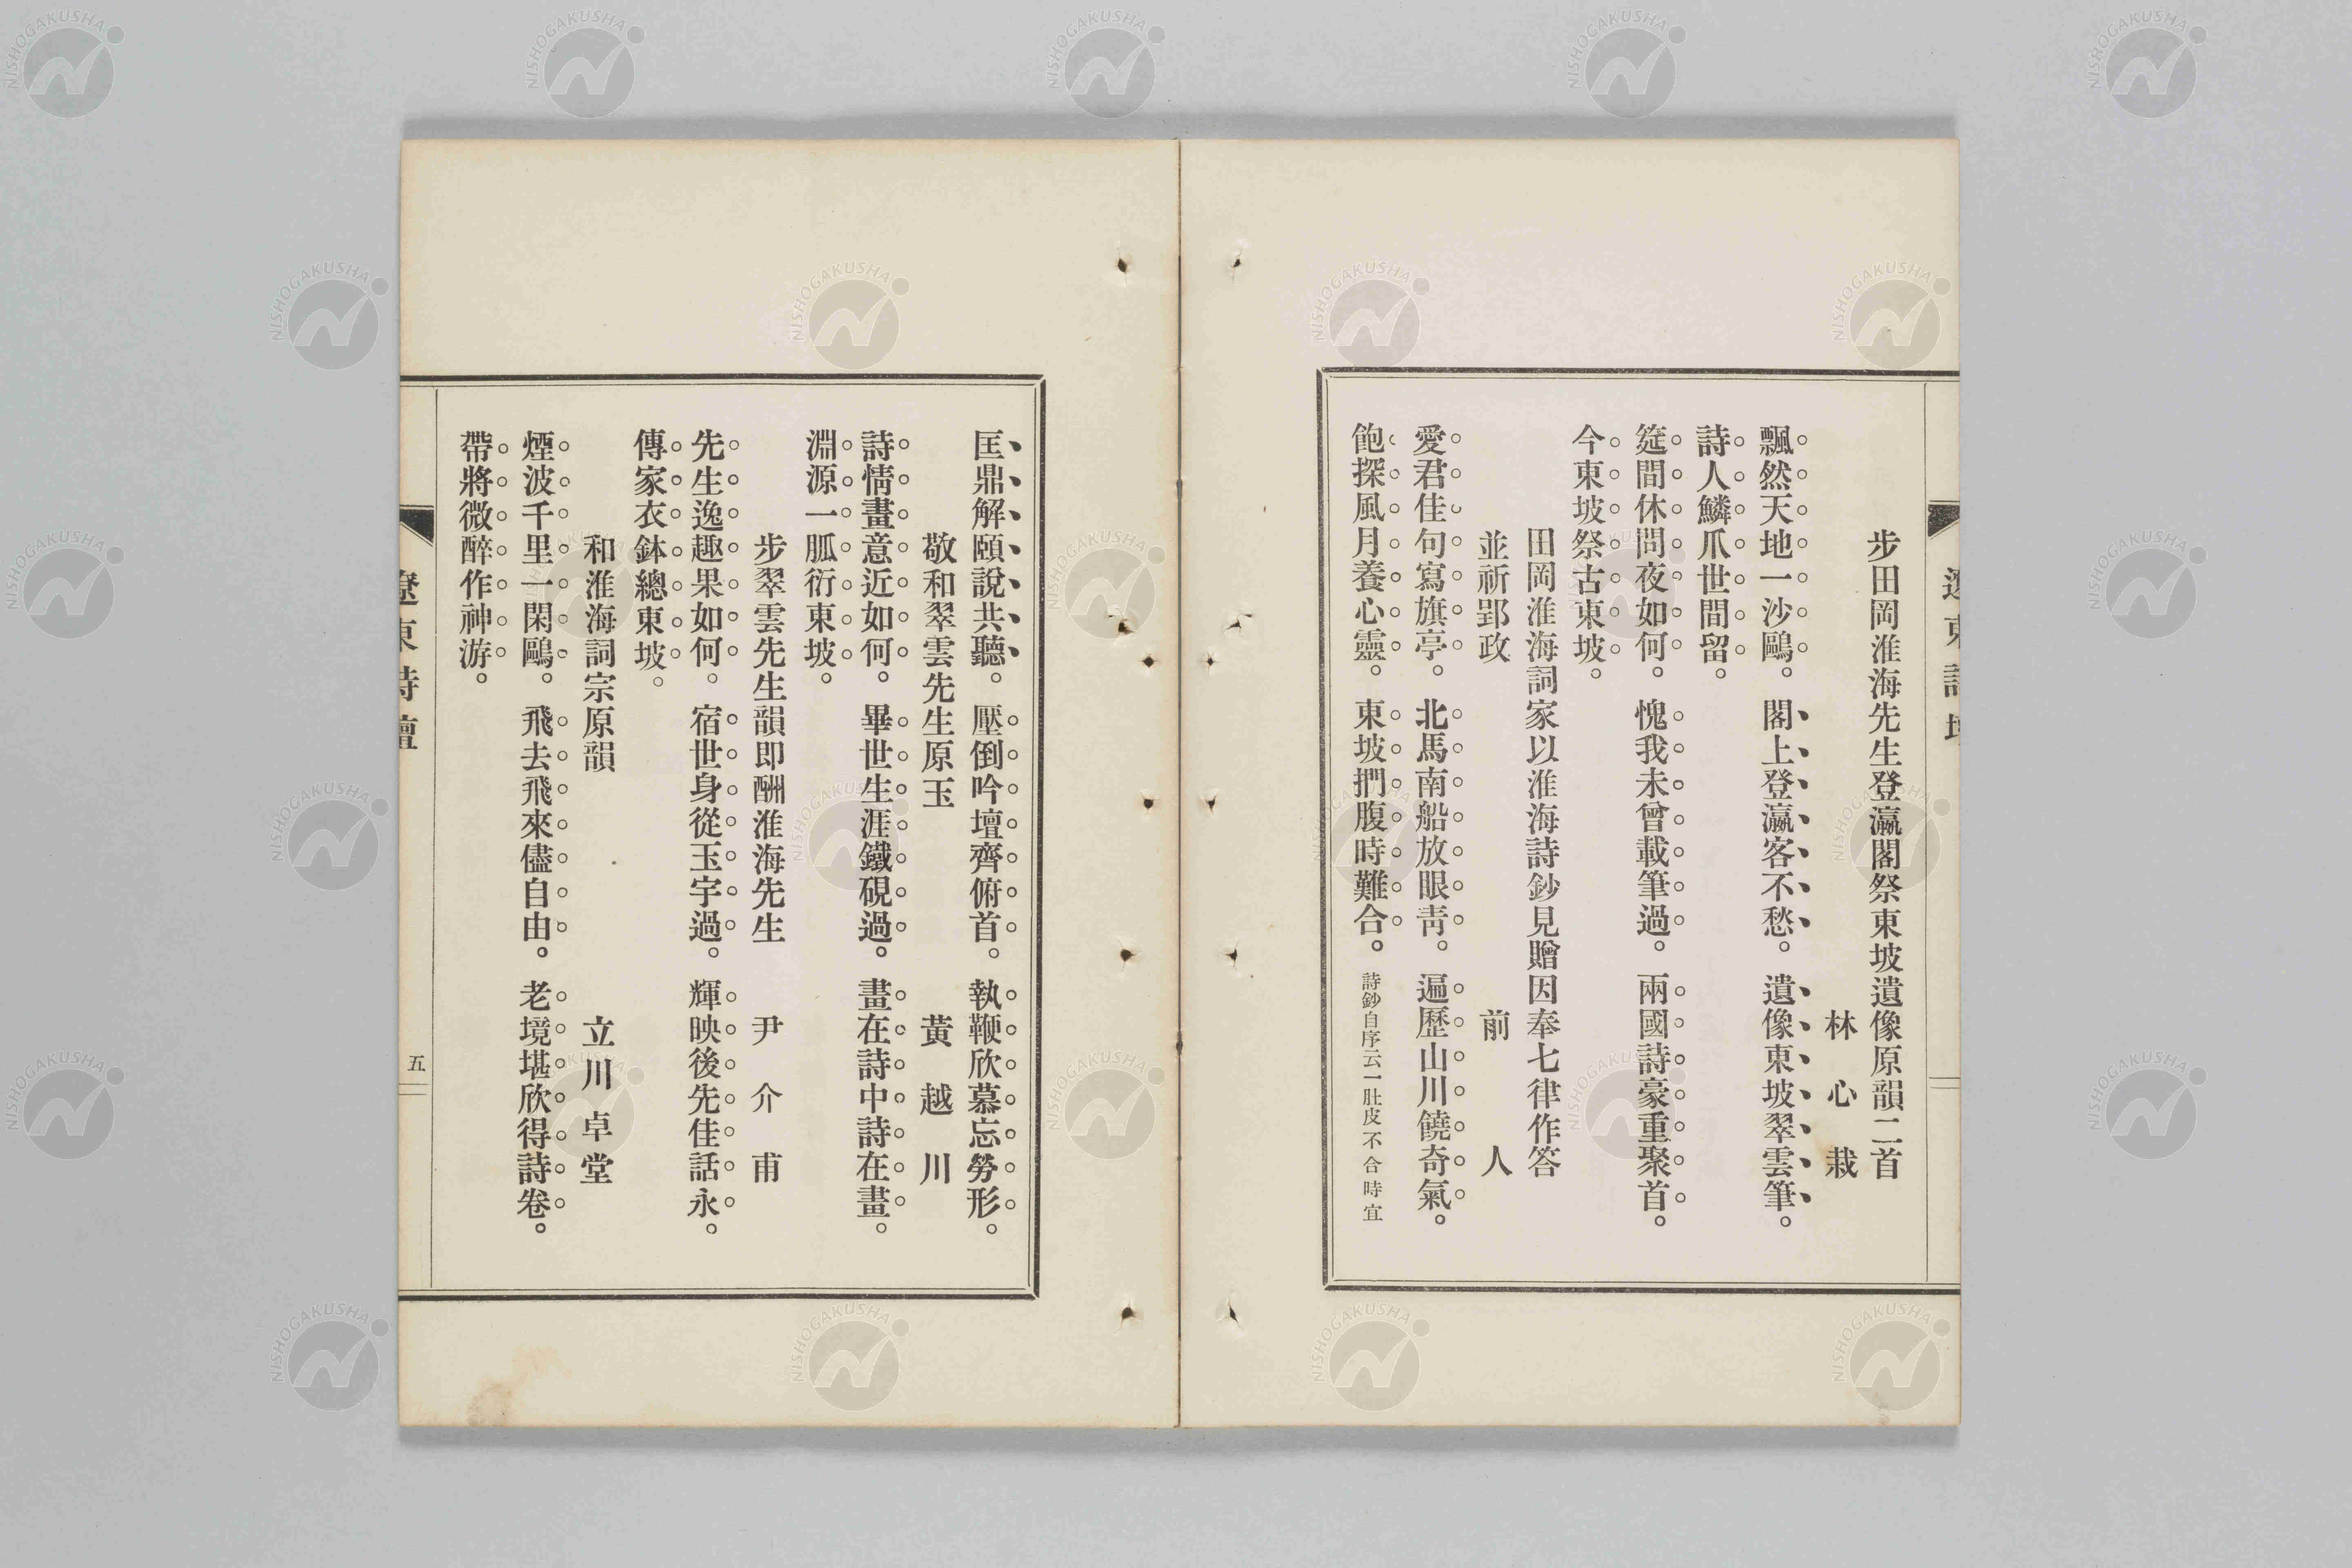 步田岡淮海先生登瀛閣祭東坡遺像原韻二首
林心栽
飄然天地一沙鷗。閣上登瀛客不愁。遺像東坡翠雲筆。
詩人鱗爪世間留。
筵間休問夜如何。愧我未曾載筆過。兩國詩豪重聚首。
今東坡祭古東坡。
田岡淮海詞家以淮海詩鈔見贈因奉七律作答
並祈郢政
前人
愛君佳句寫旗亭。北馬南船放眼靑。遍歷山川饒奇氣。
飽探風月養心靈。東坡捫腹時難合。詩鈔自序云一肚皮不合時宜
匡鼎解頤說共聽。壓倒吟壇齊俯首。執鞭欣慕忘勞形。
敬和翠雲先生原玉
黄越川
詩情畫意近如何。畢世生涯鐵硯過。畫在詩中詩在畫。
淵源一脈衍東坡。
步翠雲先生韻即酬淮海先生
尹介甫
先生逸趣果如何。宿世身從玉宇過。輝映後先佳話永。
傳家衣鉢總東坡。
和淮海詞宗原韻
立川卓堂
煙波千里一閑鷗。飛去飛來儘自由。老境堪欣得詩卷。
帶將微醉作神游。
遼東詩壇
五
NISHOGAKUSHA